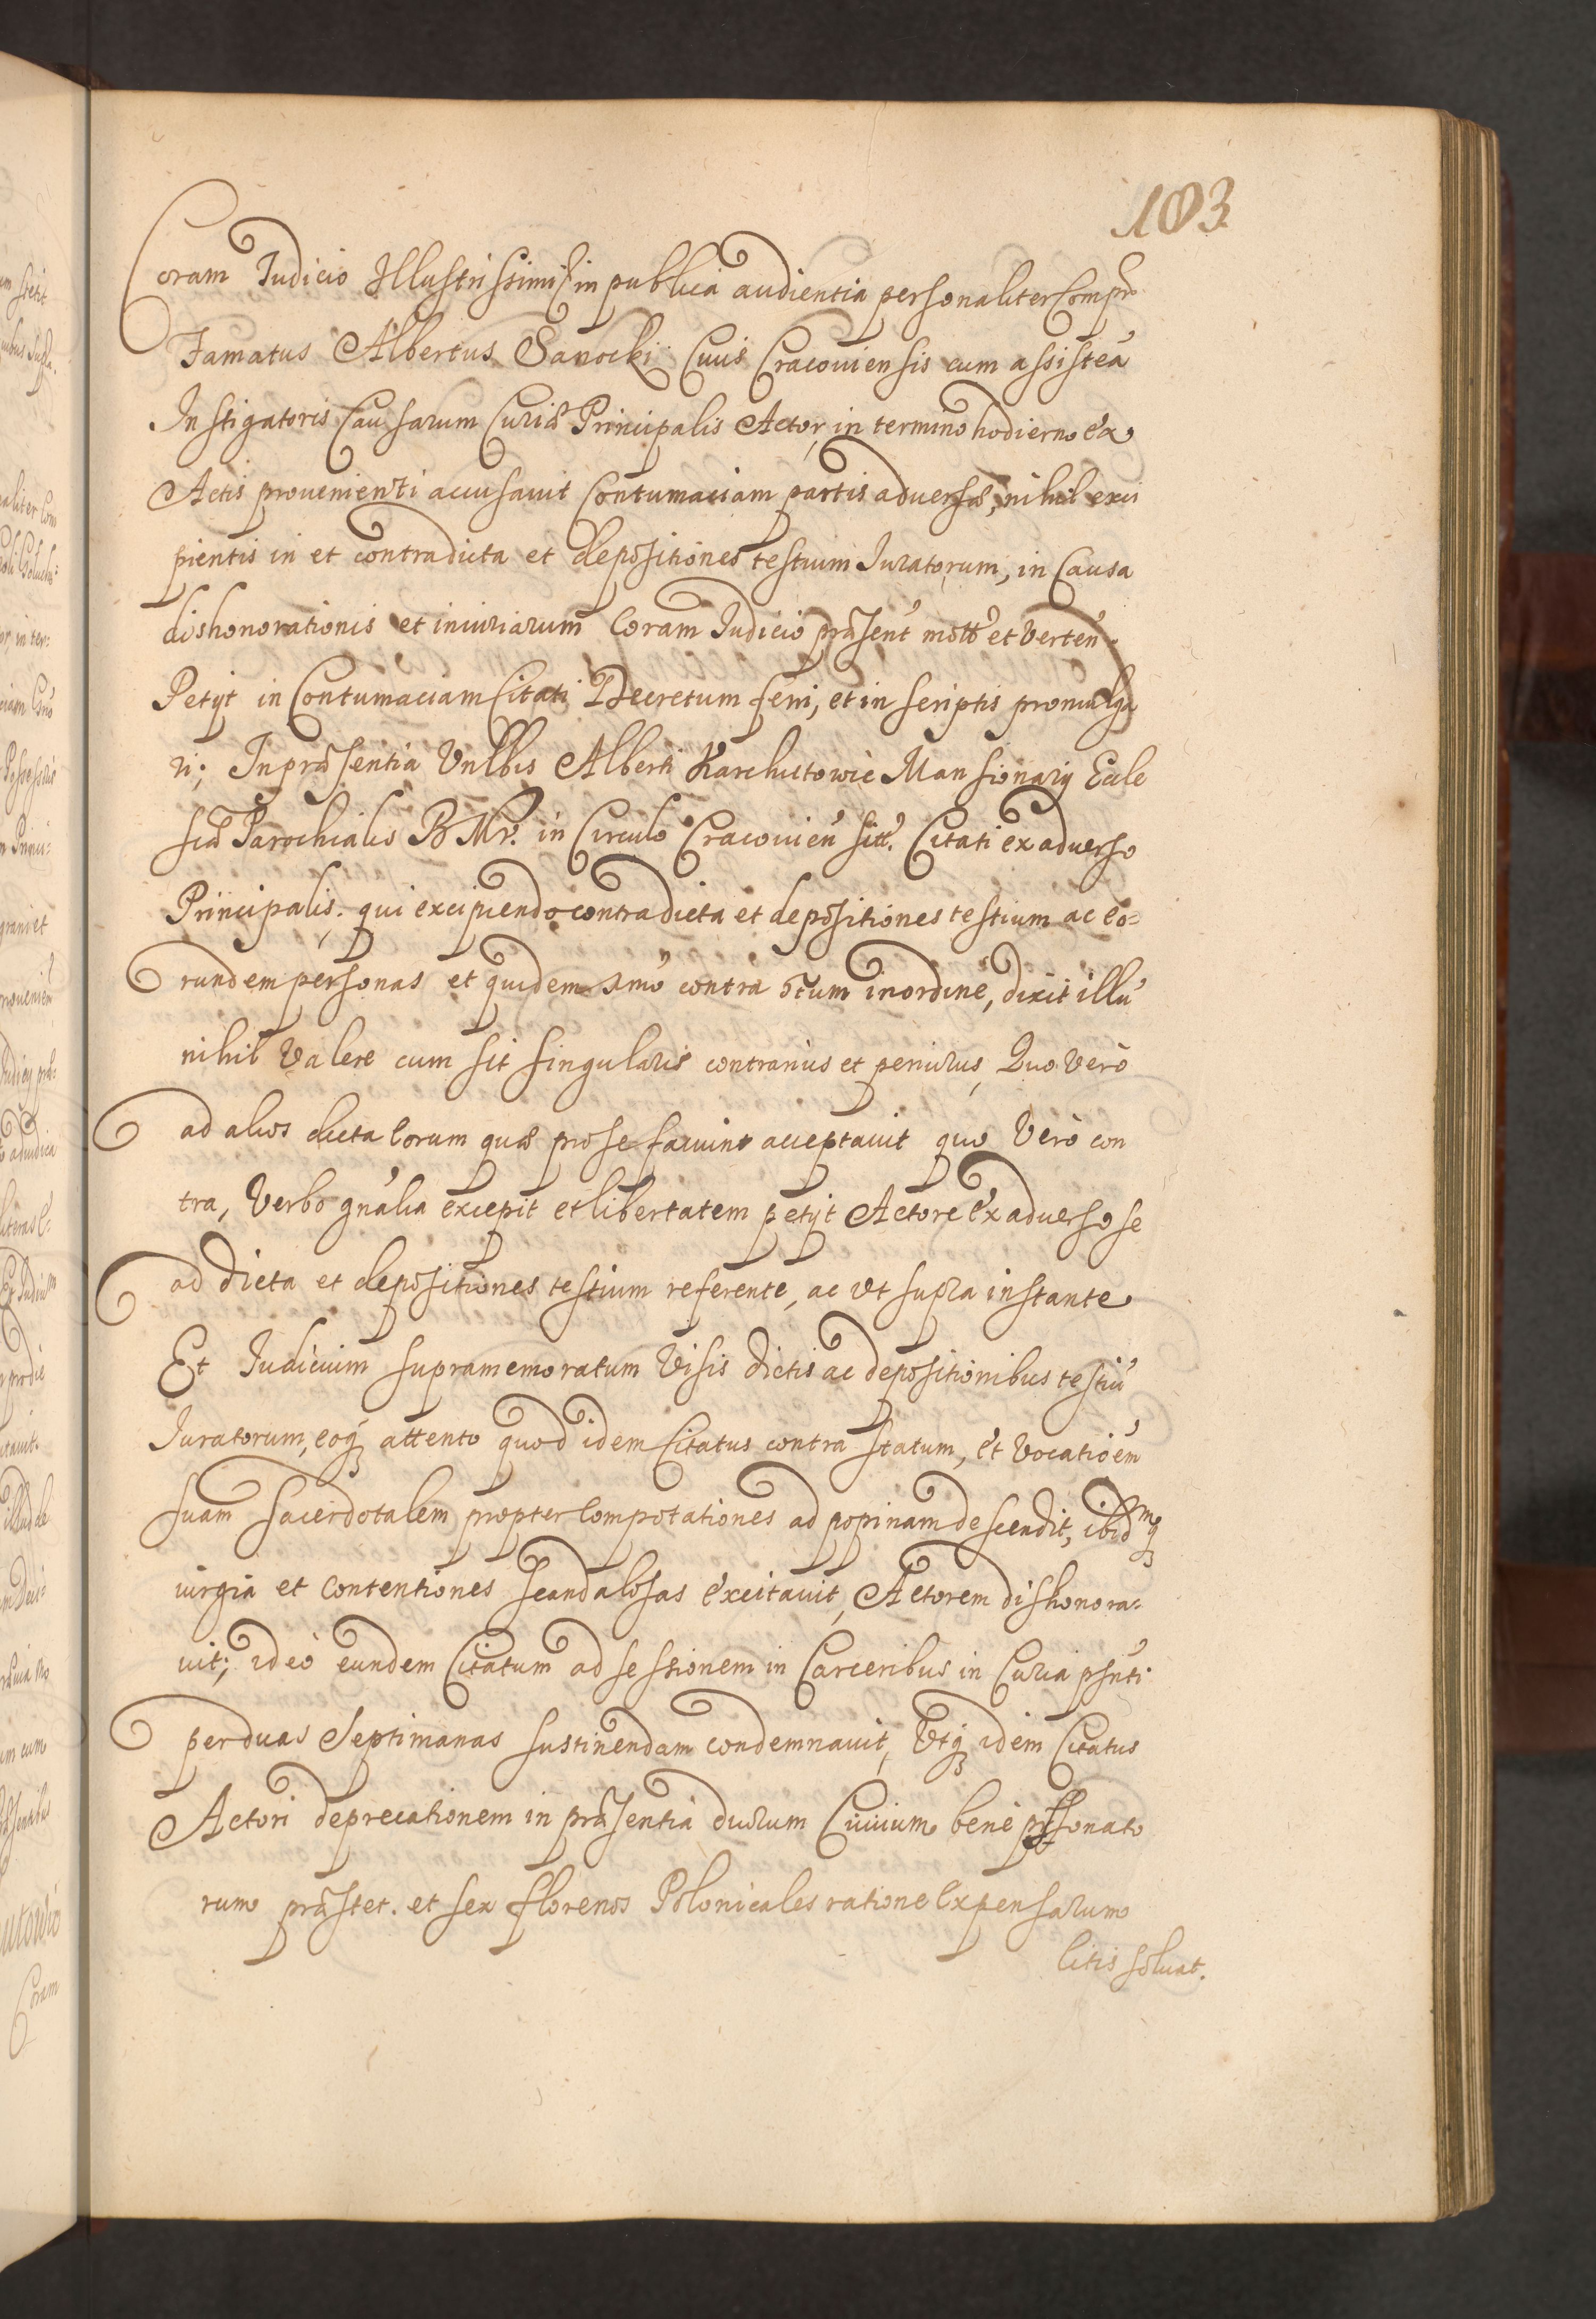 103
Coram Iudicio Illustrissimi in publica audientia personaliter Compr̃
Famatus Albertus Sanocki Ciuis Cracouiensis cum assisteã
Instigatoris Causarum Curiæ Principalis Actor, in termino hodierno ex
Actis prouenienti accusauit Contumaciam partis aduersæ, nihil exci
pientis in et contradicta et depositiones testium Iuratorum, in Causa
dishonorationis et iniuriarum Coram Iudicio præsen̄t mott̄ et verten̄.
Petyt in Contumaciam Citati Decretum ferri, et in scriptis promulga
ri; In præsentia Vnlbis Alberti Mansionarij Eccle
siæ Parochialis B M V. in Circulo Cracouien̄ sitt̄. Citati ex aduerso
Principalis. qui excipiendo contradicta et depositiones testium ac eo=
rundem personas et quidem 1mo contra 1tum inordine, dixit illū
nihil valere cum sit singularis contrarius et periurus, Quo vero
ad alios dicta eorum quæ pro se faciunt acceptauit quo vero con
tra, verbo gnãlia excepit et libertatem petyt Actore ex aduerso se
ad dicta et depositiones testium referente, ac vt supra instante
Et Iudicium supramemoratum visis dictis ac depositionibus testiū
Iuratorum, eoq; attento quod idem Citatus contra statum, et vocatiõem
suam sacerdotalem propter compotationes ad popinam descendit, ibidmq;
iurgia et contentiones scandalosas excitauit, Actorem dishonora=
uit; ideò eundem Citatum ad sessionem in Carceribus in Curia psñti
per duas Septimanas sustinendam condemnauit, Vtq; idem Citatus
Actori deprecationem in præsentia duorum Ciuium bene personato
rum præstet. et sex florenos Polonicales ratione expensarum
litis soluat.